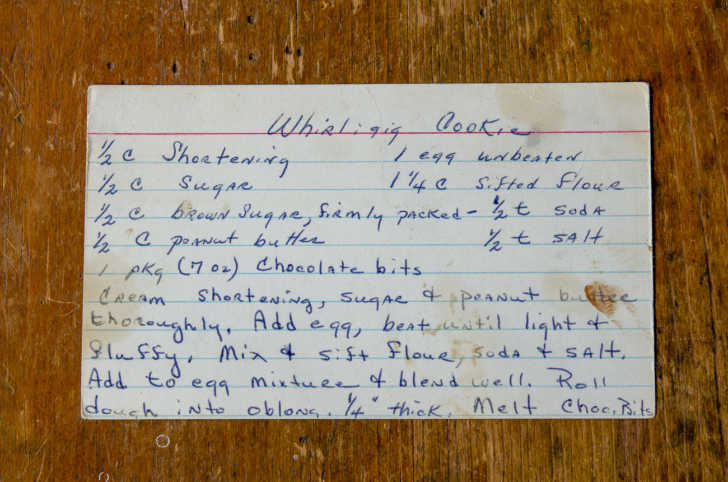 Whirligig Cookie
1/2 c Shortening 1 egg unbeaten
1/2 c Sugar 1 1/4 c Sifted flour
1/2 c brown Sugar, firmly packed - 1/2 t soda
1/2 c peanut butter 1/2 t salt
1 pkg (7 oz) Chocolate bits
Cream Shortening, sugar & peanut butter
thoroughly. Add egg, beat until light &
fluffy. Mix & sift flour, soda & salt.
Add to egg mixture & blend well. Roll
dough into oblong. 1/4" thick. Melt Choc. Bits